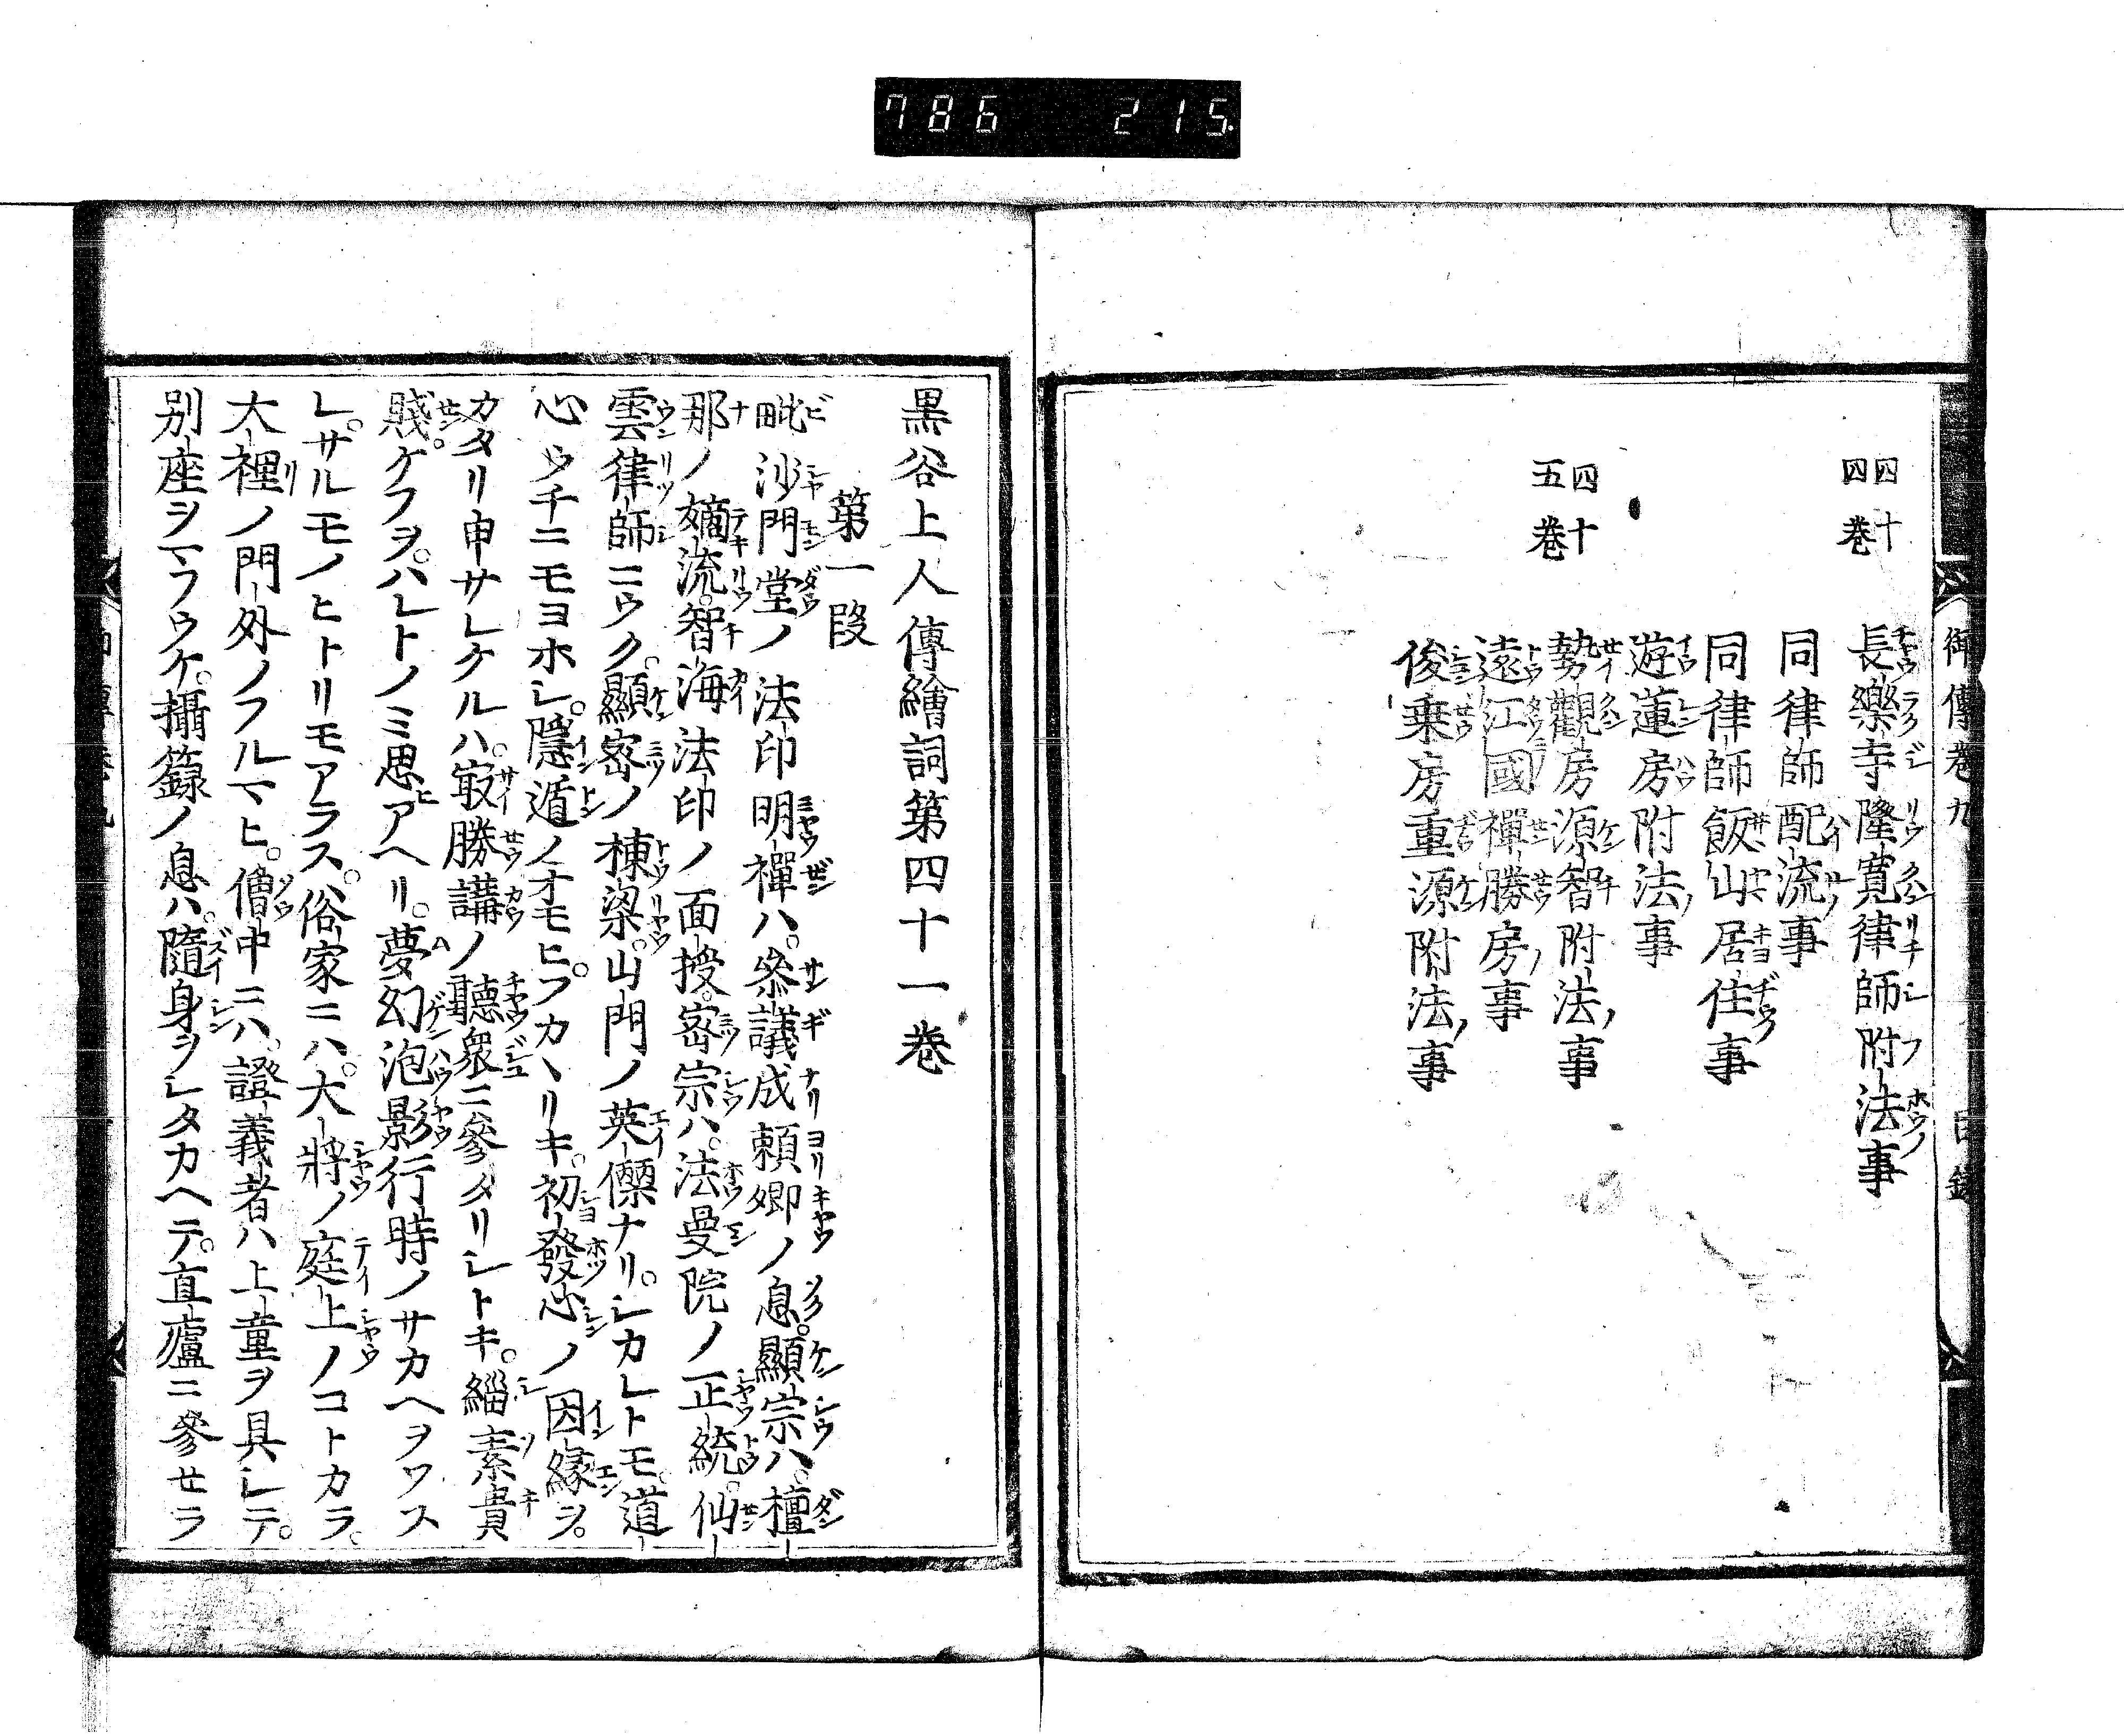 786 215
御傳卷九 目錄
四十四卷
長樂寺隆寛律師附法事
同律師配流事
同律師飯山居住事
遊蓮房附法事
四十五卷
勢觀房源智附法事
遠江國禪勝房事
俊乗房重源附法事
黒谷上人傳繪詞第四十一卷
第一段
毗沙門堂ノ法印明禪ハ。參議成頼卿ノ息。顯宗ハ。檀
那ノ嫡流。智海法印ノ面授。密宗ハ。法曼院ノ正統。仙
雲律師ニウク。顯密ノ棟梁。山門ノ英傑ナリ。シカレトモ。道
心ウチニモヨホシ。隱遁ノオモヒ。フカヽリキ。初發心ノ因縁ヲ。
カタリ申サレケルハ。最勝講ノ聽衆ニ參タリシトキ。緇素貴
賤。ケフヲ。ハレトノミ思アヘリ。夢幻泡影行時ノサカヘヲワス
レ。サルモノヒトリモアラス。俗家ニハ。大將ノ庭上ノコトカラ。
大裡ノ門外ノフルマヒ。僧中ニハ。證義者ハ上童ヲ具シテ。
別座ヲマフウケ。攝籙ノ息ハ。隨身ヲシタカヘテ。直廬ニ參セラ